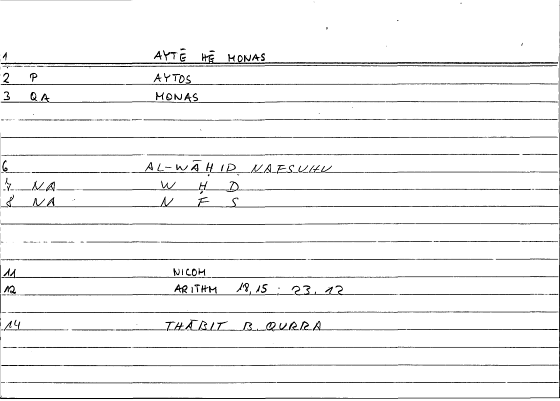 1 AYTĒ HĒ MONAS
2 P AYTOS
3 QA MONAS
6 AL-WĀḤID NAFSUHU
7 NA W Ḥ D
8 NA N F S
11 NICOM
12 ARITHM 18,15 : 23.12
14 THĀBIT B. QURRA